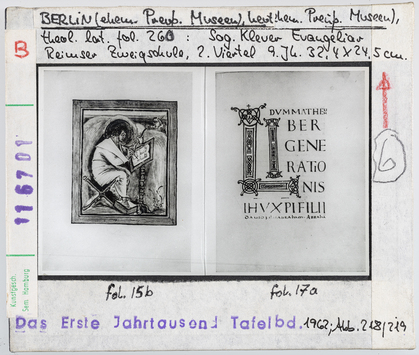 BERLIN (ehem. Preuß. Museen), heut: hem. Preuß. Museen),
theol. lat. fol. 260 : Sog. Klever Evangeliar
Reimser Zweigschule, 2. Viertel 9. Jh. 32,4 x 24,5 cm.
B
116701
Kunstgesch.
Sem. Hamburg
DVM MATHEI
LIBER
GENE
RATIO
NIS
IHV XPI FILII
fol. 15b
fol. 17a
Das Erste Jahrtausend Tafelbd. 1962, Abb. 218/219